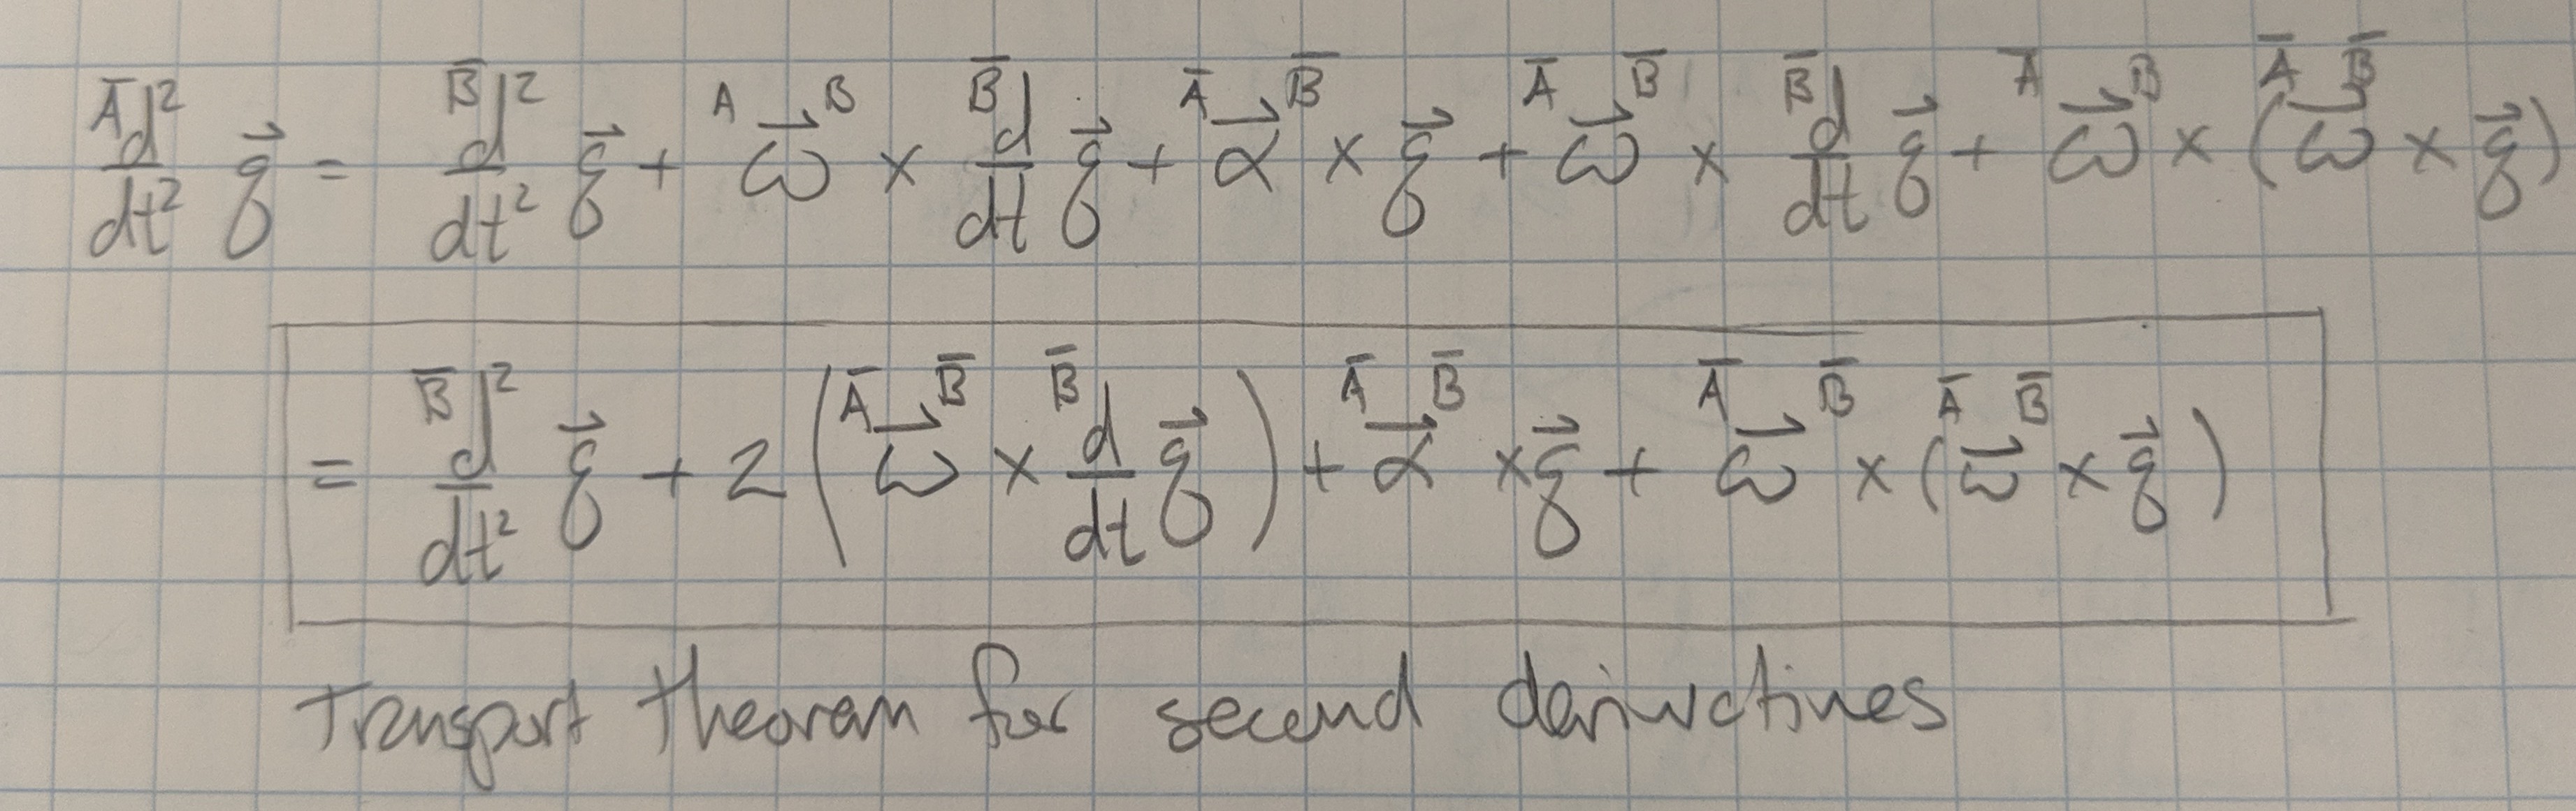 Ā d²/dt² q⃗ = B̄ d²/dt² q⃗ + A ω⃗ B × B̄ d/dt q⃗ + Ā α⃗ B̄ × q⃗ + Ā ω⃗ B̄ × B̄ d/dt q⃗ + Ā ω⃗ B × (Ā ω⃗ B̄ × q⃗)
= B̄ d²/dt² q⃗ + 2(Ā ω⃗ B̄ × B̄ d/dt q⃗) + Ā α⃗ B̄ × q⃗ + Ā ω⃗ B̄ × (Ā ω⃗ B̄ × q⃗)
Transport theorem for second derivatives